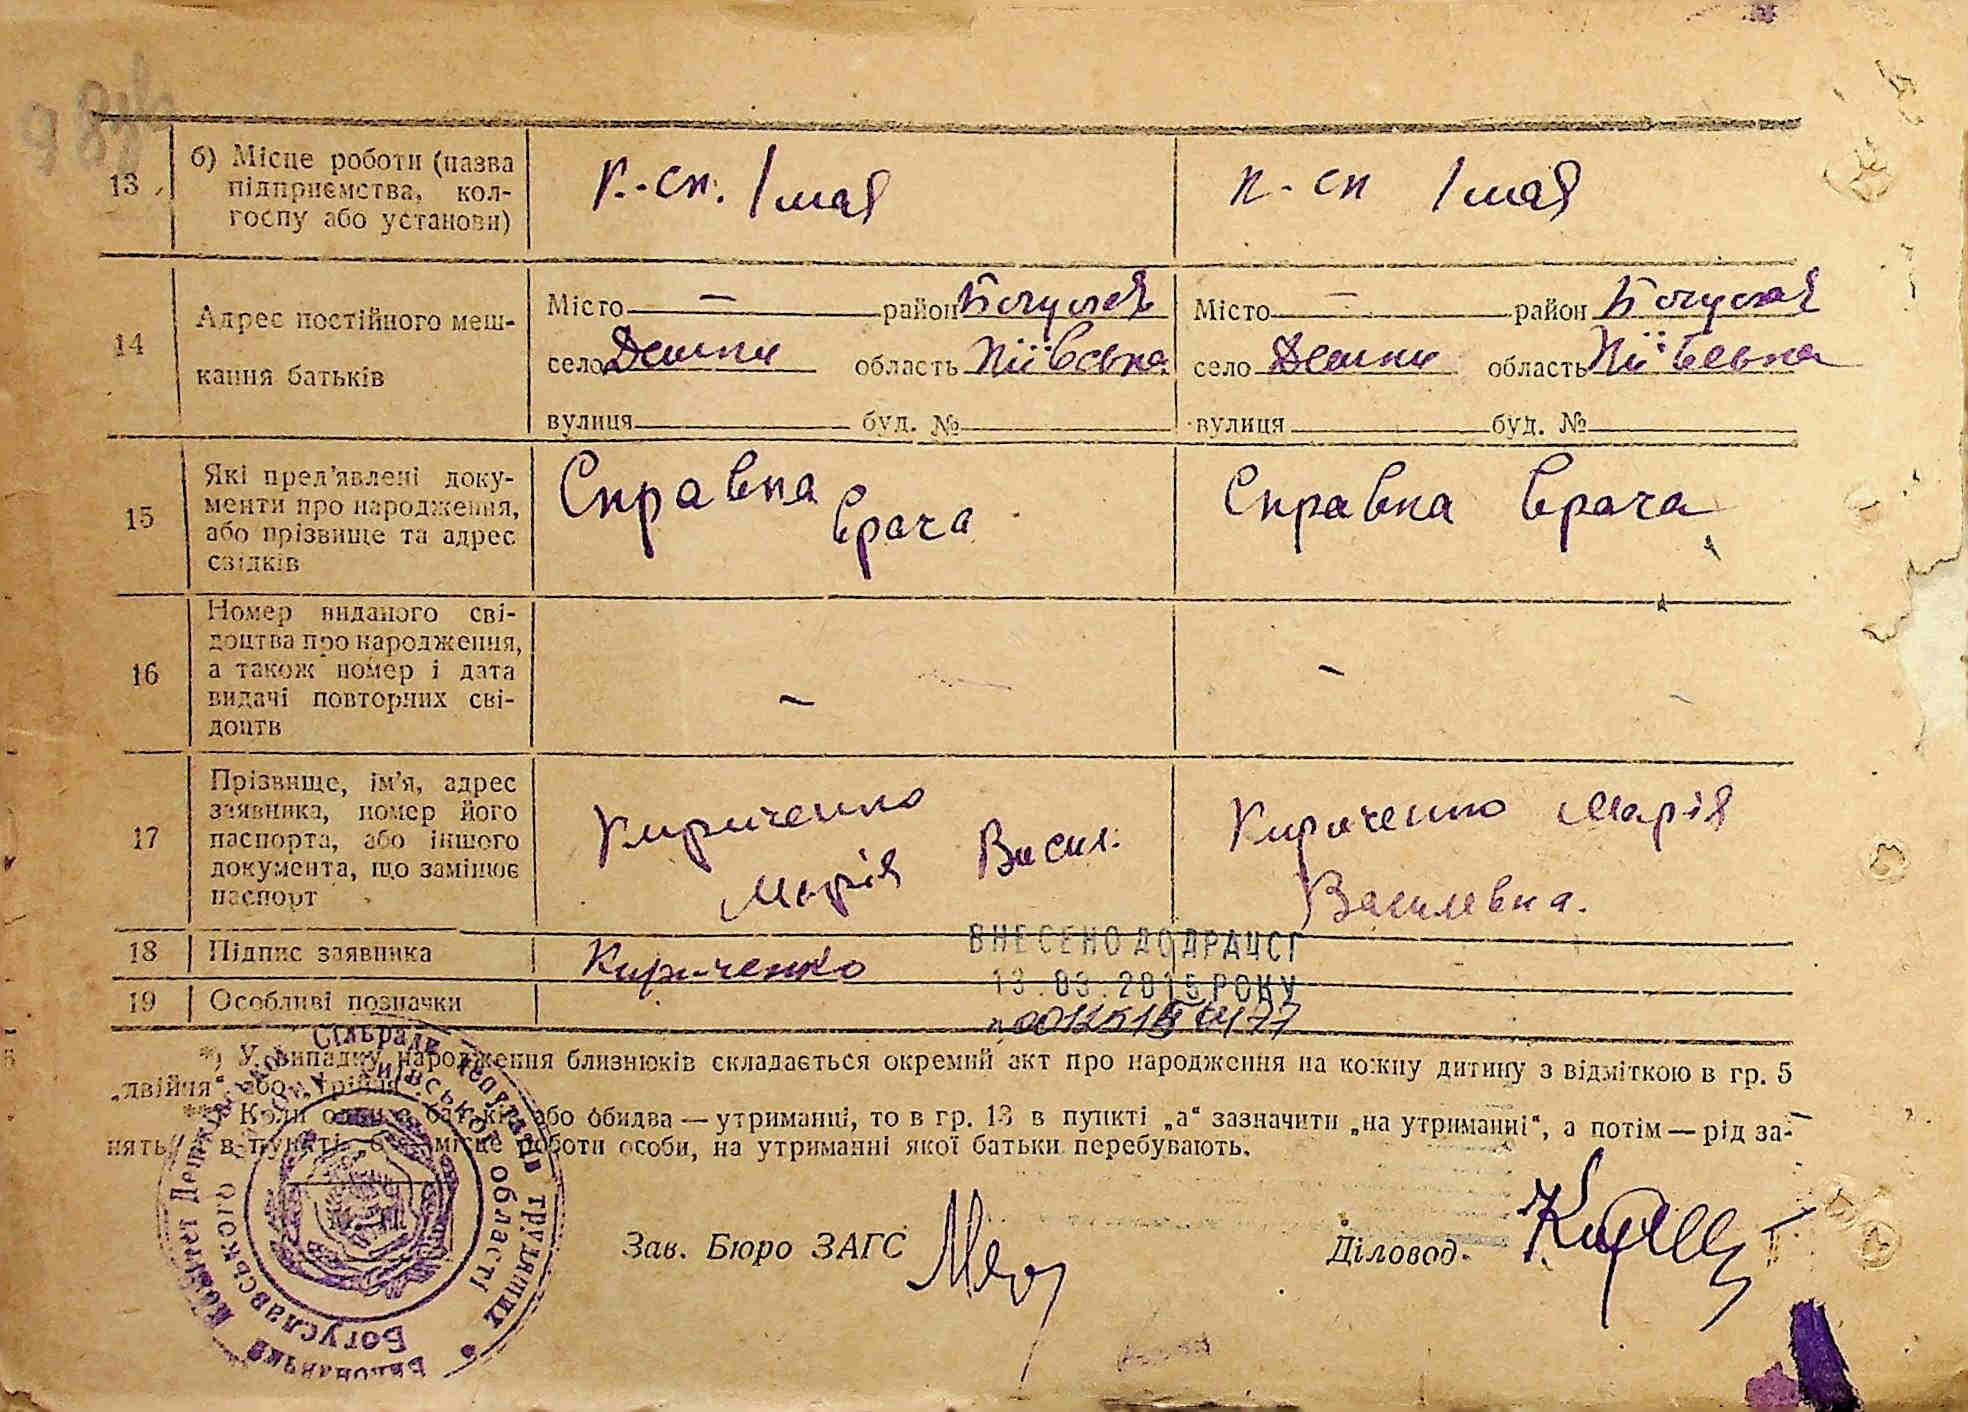 13
б) Місце роботи (назва
підприємства, кол-
госпу або установи)
к-сп. 1 мая
к-сп 1 мая
14
Адрес постійного меш-
кання батьків
Місто — район Богуслав
село Дешки область Київська
вулиця буд. №
Місто — район Богуслав
село Дешки область Київська
вулиця буд. №
15
Які пред'явлені доку-
менти про народження,
або прізвище та адрес
свідків
Справка
врача
Справка врача
16
Номер виданого сві-
доцтва про народження,
а також номер і дата
видачі повторних сві-
доцтв
–
–
17
Прізвище, ім'я, адрес
заявника, номер його
паспорта, або іншого
документа, що замінює
паспорт
Кириченко
Марія Васил.
Кириченко Марія
Василевна.
18 Підпис заявника Кириченко
ВНЕСЕНО ДО ДРАЦСГ
13.03.2015 РОКУ
19 Особливі позначки
*) У випадку народження близнюків складається окремий акт про народження на кожну дитину з відміткою в гр. 5
„двійня“ або „трійня“.
**) Коли один з батьків або обидва — утриманці, то в гр. 13 в пункті „а“ зазначити „на утриманні“, а потім — рід за-
нять, в пункті „б“ — місце роботи особи, на утриманні якої батьки перебувають.
Зав. Бюро ЗАГС
Діловод
Виконавчий Комітет Дешківської Сільради депутатів трудящих
Богуславського району Київської області